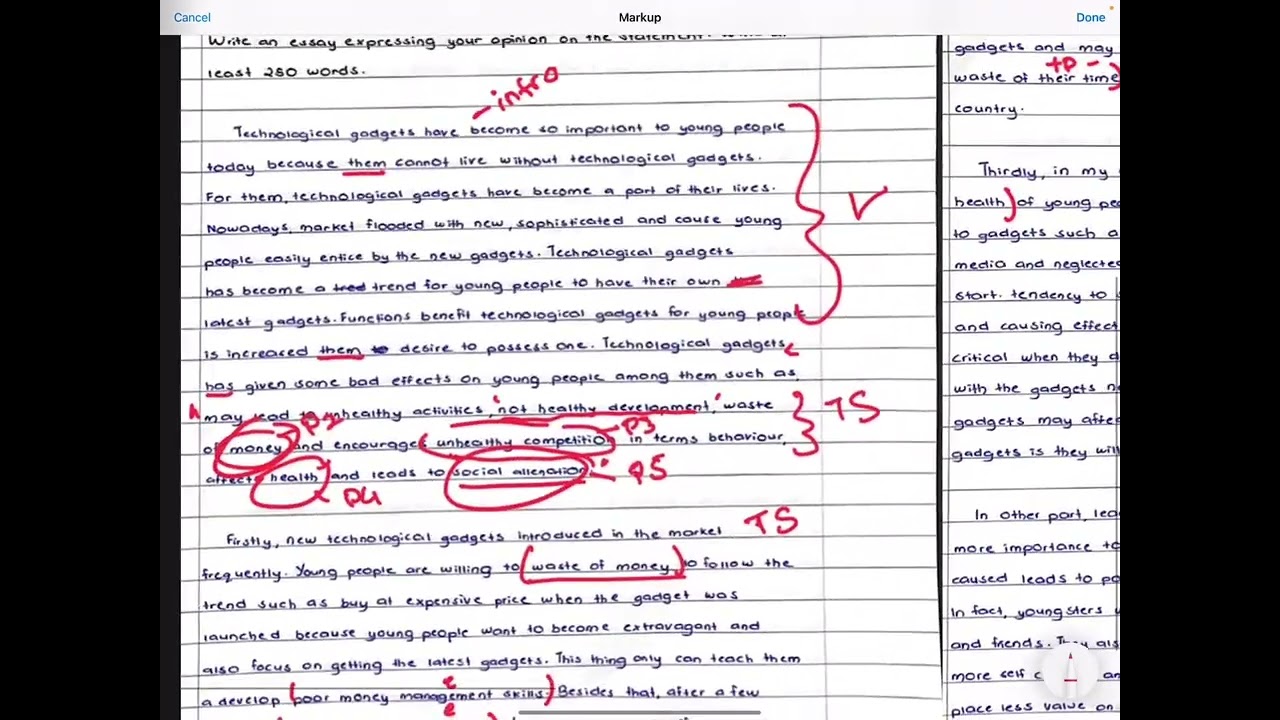 Cancel
Markup
Done
Write an essay expressing your opinion on the statement.
least 250 words.
-intro
Technological gadgets have become so important to young people
today because them cannot live without technological gadgets.
For them, technological gadgets have become a part of their lives.
Nowadays, market flooded with new, sophisticated and cause young
people easily entice by the new gadgets. Technological gadgets
has become a trend for young people to have their own
latest gadgets. Functions benefit technological gadgets for young people
is increased them desire to possess one. Technological gadgets
has given some bad effects on young people among them such as
may lead to unhealthy activities, not healthy development, waste
TS
P2
P3
of money and encourages unhealthy competition in terms behaviour,
affects health and leads to social alienation.
P5
P4
Firstly, new technological gadgets introduced in the market
TS
frequently. Young people are willing to waste of money to follow the
trend such as buy at expensive price when the gadget was
launched because young people want to become extravagant and
also focus on getting the latest gadgets. This thing only can teach them
a develop poor money management skills. Besides that, after a few
gadgets and may
tP
waste of their time
country.
Thirdly, in my
health of young pe
to gadgets such a
media and neglected
start. tendency to
and causing effect
critical when they d
with the gadgets n
gadgets may affe
gadgets is they will
In other part, lea
more importance to
caused leads to po
In fact, youngsters
and friends. They als
more self
place less value on